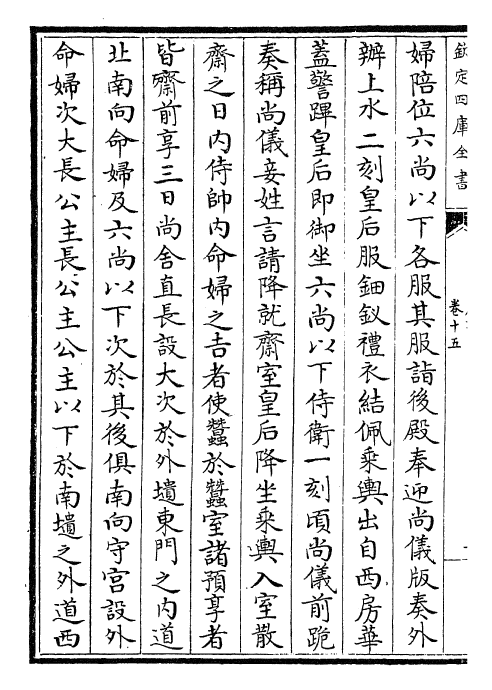 欽定四庫全書
卷十五
婦陪位六尚以下各服其服詣後殿奉迎尚儀版奏外
辦上水二刻皇后服鈿釵禮衣結佩乘輿出自西房華
蓋警蹕皇后即御坐六尚以下侍衛一刻頃尚儀前跪
奏稱尚儀妾姓言請降就齋室皇后降坐乘輿入室散
齋之日内侍帥内命婦之吉者使蠶於蠶室諸預享者
皆齋前享三日尚舍直長設大次於外壝東門之内道
北南向命婦及六尚以下次於其後俱南向守宫設外
命婦次大長公主長公主公主以下於南壝之外道西